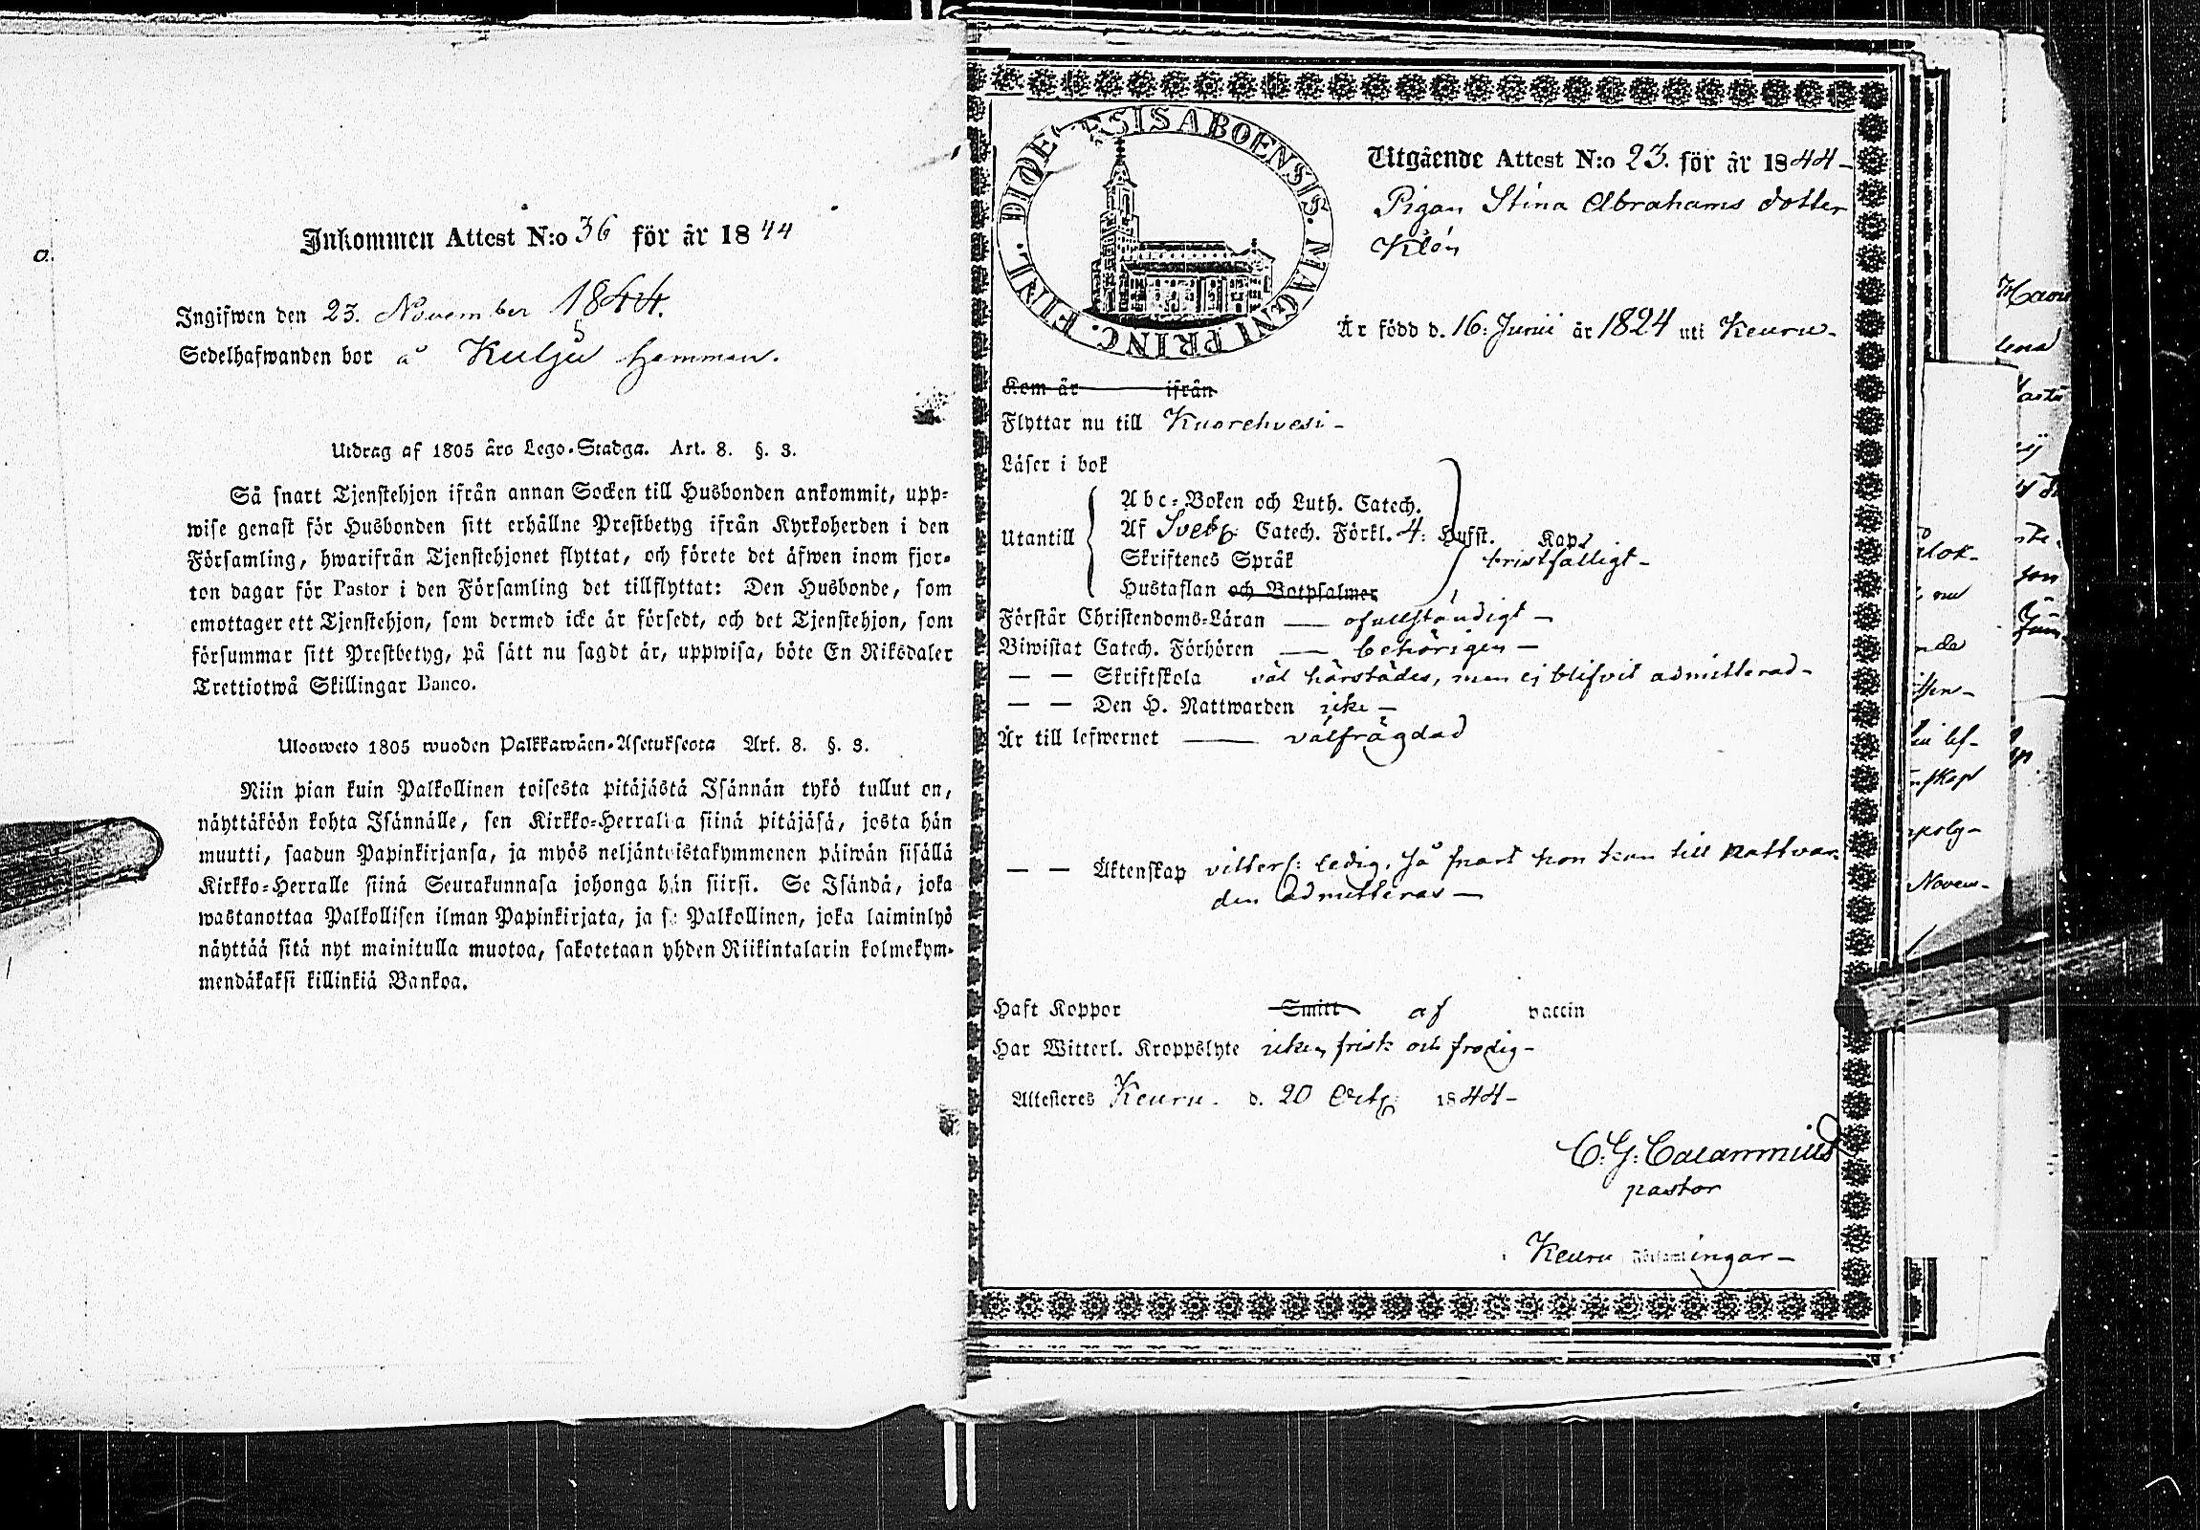 Inkommen Attest N:o 36 för år 1844
Ingifwen den 23. November 1844.
Sedelhafwanden bor å Kulju hemman.
Utdrag af 1805 års Lego-Stadga. Art. 8. §. 3.
Så snart Tjenstehjon ifrån annan Socken till Husbonden ankommit, upp-
wise genast för Husbonden sitt erhållne Prestbetyg ifrån Kyrkoherden i den
Församling, hwarifrån Tjenstehjonet flyttat, och förete det äfwen inom fjor-
ton dagar för Pastor i den Församling det tillflyttat: Den Husbonde, som
emottager ett Tjenstehjon, som dermed icke är försedt, och det Tjenstehjon, som
försummar sitt Prestbetyg, på sätt nu sagdt är, uppwisa, böte En Riksdaler
Trettiotwå Skillingar Banco.
Ulosweto 1805 wuoden Palkkawäen-Asetuksesta Art. 8. §. 3.
Niin pian kuin Palkollinen toisesta pitäjästä Isännän tykö tullut on,
näyttäköön kohta Isännälle, sen Kirkko-Herralta siinä pitäjäsä, josta hän
muutti, saadun Papinkirjansa, ja myös neljäntoistakymmenen päiwän sisällä
Kirkko-Herralle siinä Seurakunnasa johonga hän siirsi. Se Isändä, joka
wastanottaa Palkollisen ilman Papinkirjata, ja se Palkollinen, joka laiminlyö
näyttää sitä nyt mainitulla muotoa, sakotetaan yhden Riikintalarin kolmekym-
mendäkaksi killinkiä Bankoa.
DIOECESIS ABOENSIS. MAGNI PRINC. FINL.
Utgående Attest N:o 23. för år 1844-
Pigan Stina Abrahams dotter
Klön
Är född d. 16: Junii år 1824 uti Keuru-
Kom år ifrån
Flyttar nu till Kuorehvesi-
Läser i bok
Utantill
Abc-Boken och Luth. Catech.
Af Sveb: Catech. Förkl. 4: Hufst. Kap.
Skriftenes Språk bristfälligt-
Hustaflan och Botpsalmer
Förstår Christendoms-Läran — ofullständigt-
Biwistat Catech. Förhören — behörigen-
— — Skriftskola väl härstädes, men ej blifvit admitterad-
— — Den H. Nattwarden icke-
Är till lefwernet — välfrägdad
— — Äktenskap vitterl: ledig, så snart hon kan till Nattvar-
den admitteras-
Haft Koppor Smitt af vaccin
Har Witterl. Kroppslyte icke, frisk och frodig-
Attesteres Keuru. d. 20 Octb: 1844-
C: G: Calamnius
pastor
Keuru Församlingar-